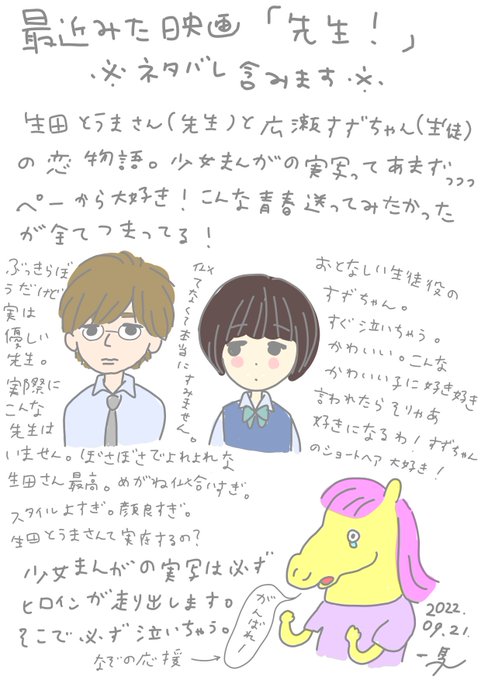 最近みた映画「先生!」
※ネタバレ含みます※
生田とうまさん(先生)と広瀬すずちゃん(生徒)
の恋物語。少女まんがの実写ってあまずっっっ
ぺーから大好き!こんな青春送ってみたかった
が全てつまってる!
ぶっきらぼ
うだけど
実は
優しい
先生。
実際に
こんな
先生は
いません。ぼさぼさでよれよれな
生田さん最高。めがね似合いすぎ。
スタイルよすぎ。顔良すぎ。
生田とうまさんて実在するの?
似てなくて本当にすみません。
おとなしい生徒役の
すずちゃん。
すぐ泣いちゃう。
かわいい。こんな
かわいい子に好き好き
言われたらそりゃあ
好きになるわ!すずちゃん
のショートヘア大好き!
少女まんがの実写は必ず
ヒロインが走り出します。
そこで必ず泣いちゃう。
なぞの応援
がんばれー
2022.
09.21.